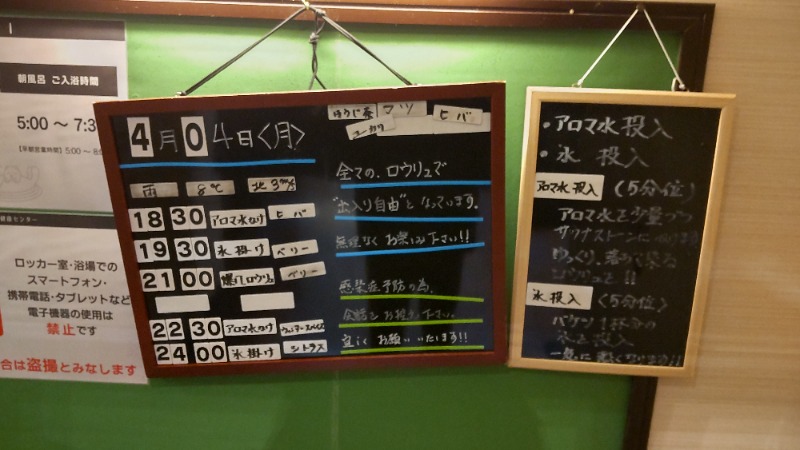 朝風呂 ご入浴時間
5:00 ～ 7:3
【早朝営業時間】5:00 ～
ロッカー室・浴場での
スマートフォン・
携帯電話・タブレットなど
電子機器の使用は
禁止です
合は盗撮とみなします
4月04日〈月〉
雨 8℃ 北3m/s
18 30 アロマ水かけ ヒバ
19 30 氷掛け ベリー
21 00 爆パロウリュ ベリー
22 30 アロマ水かけ
24 00 氷掛け シトラス
ほうじ茶 マツ ヒバ
ユーカリ
全ての、ロウリュで
"出入り自由"となっています。
無理なくお楽しみ下さい!!
感染症予防の為、
会話をお控え下さい。
宜しくお願いいたします!!
・アロマ水投入
・氷 投入
アロマ水投入 (5分位)
アロマ水を少量づつ
サウナストーンに
氷投入 (5分位)
バケツ1杯分の
氷を投入
一気に熱くなります!!